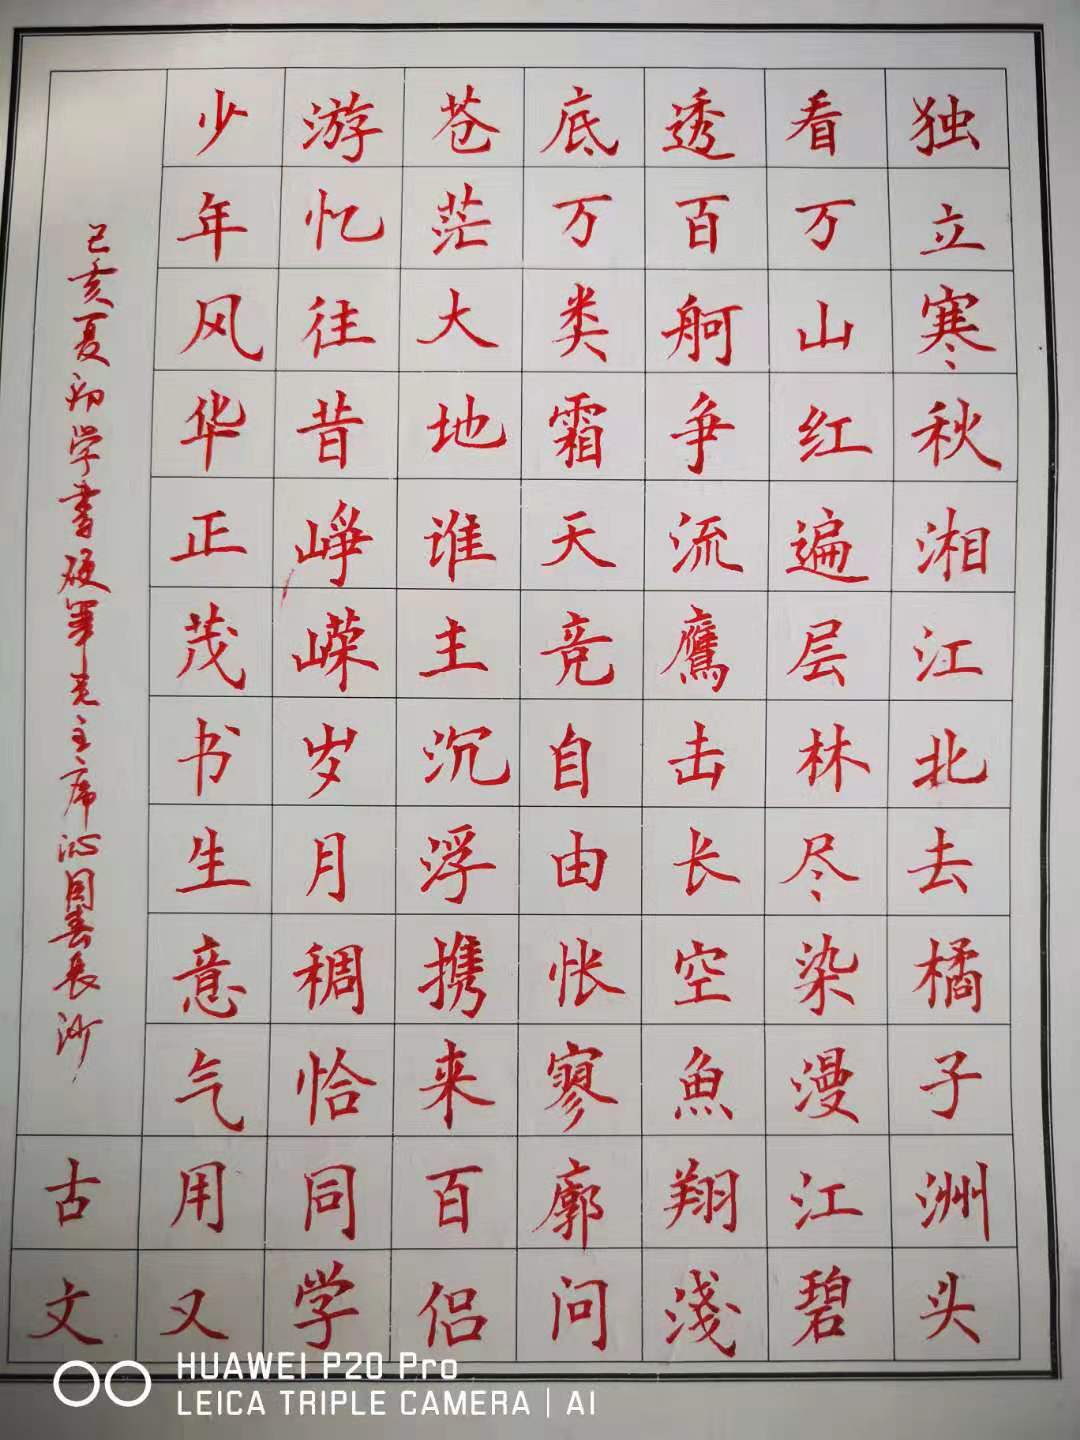 独立寒秋湘江北去橘子洲头
看万山红遍层林尽染漫江碧
透百舸争流鷹击长空魚翔淺
底万类霜天竞自由怅寥廓问
苍茫大地谁主沉浮携来百侣
游忆往昔峥嵘岁月稠恰同学
少年风华正茂书生意气用又
己亥夏初学書硬筆毛主席沁园春長沙
古文
HUAWEI P20 Pro
LEICA TRIPLE CAMERA | AI